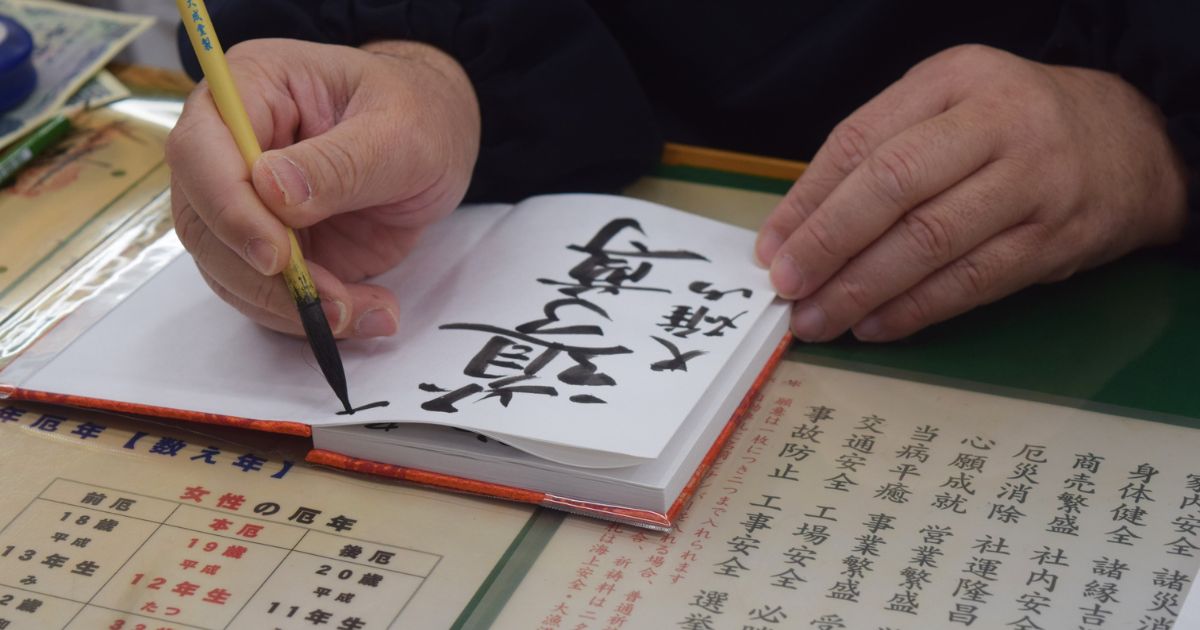 大成堂製
大雄山
道了尊
年厄年【数え年】
女性の厄年
前厄 本厄 後厄
18歳 19歳 20歳
平成 平成 平成
13年生 12年生 11年生
み たつ
内安全 諸災
身体健全 諸縁吉
商売繁盛 社内安
厄災消除 社運隆昌
心願成就 営業繁盛
当病平癒 事業繁盛 受
交通安全 工場安全 必
事故防止 工事安全 選挙
※ 願意は一枚につき二つまで入れられます
れる場合、普通祈
合、祈祷料は二
は海上安全・大漁